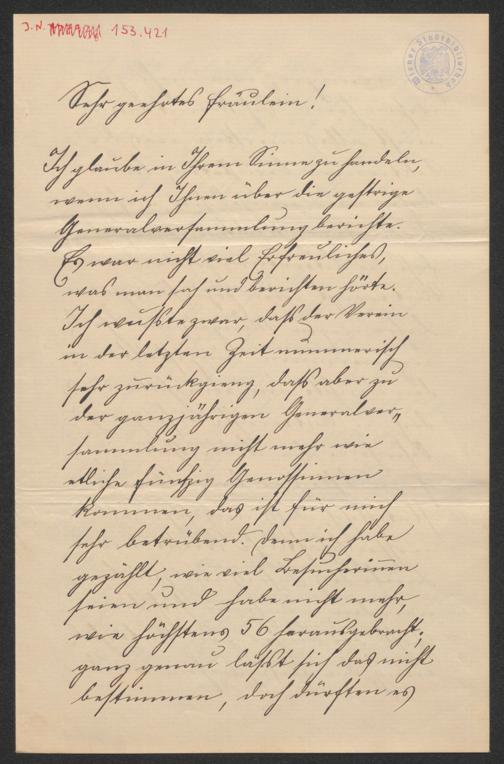 J. N. 153.421
Wiener Stadtbibliothek
Sehr geehrtes Fräulein!
Ich glaube in Ihrem Sinne zu handeln,
wenn ich Ihnen über die gestrige
Generalversammlung berichte.
Es war nicht viel Erfreuliches,
was man sah und berichten hörte.
Ich wußte zwar, daß der Verein
in der letzten Zeit nummerisch
sehr zurückgieng, daß aber zu
der ganzjährigen Generalver„
sammlung nicht mehr wie
etliche fünfzig Genossinnen
kommen, das ist für mich
sehr betrübend. Denn ich habe
gezählt, wie viel Besucherinnen
seien und habe nicht mehr,
wie höchstens 56 herausgebracht;
ganz genau lässt sich das nicht
bestimmen, doch dürften es